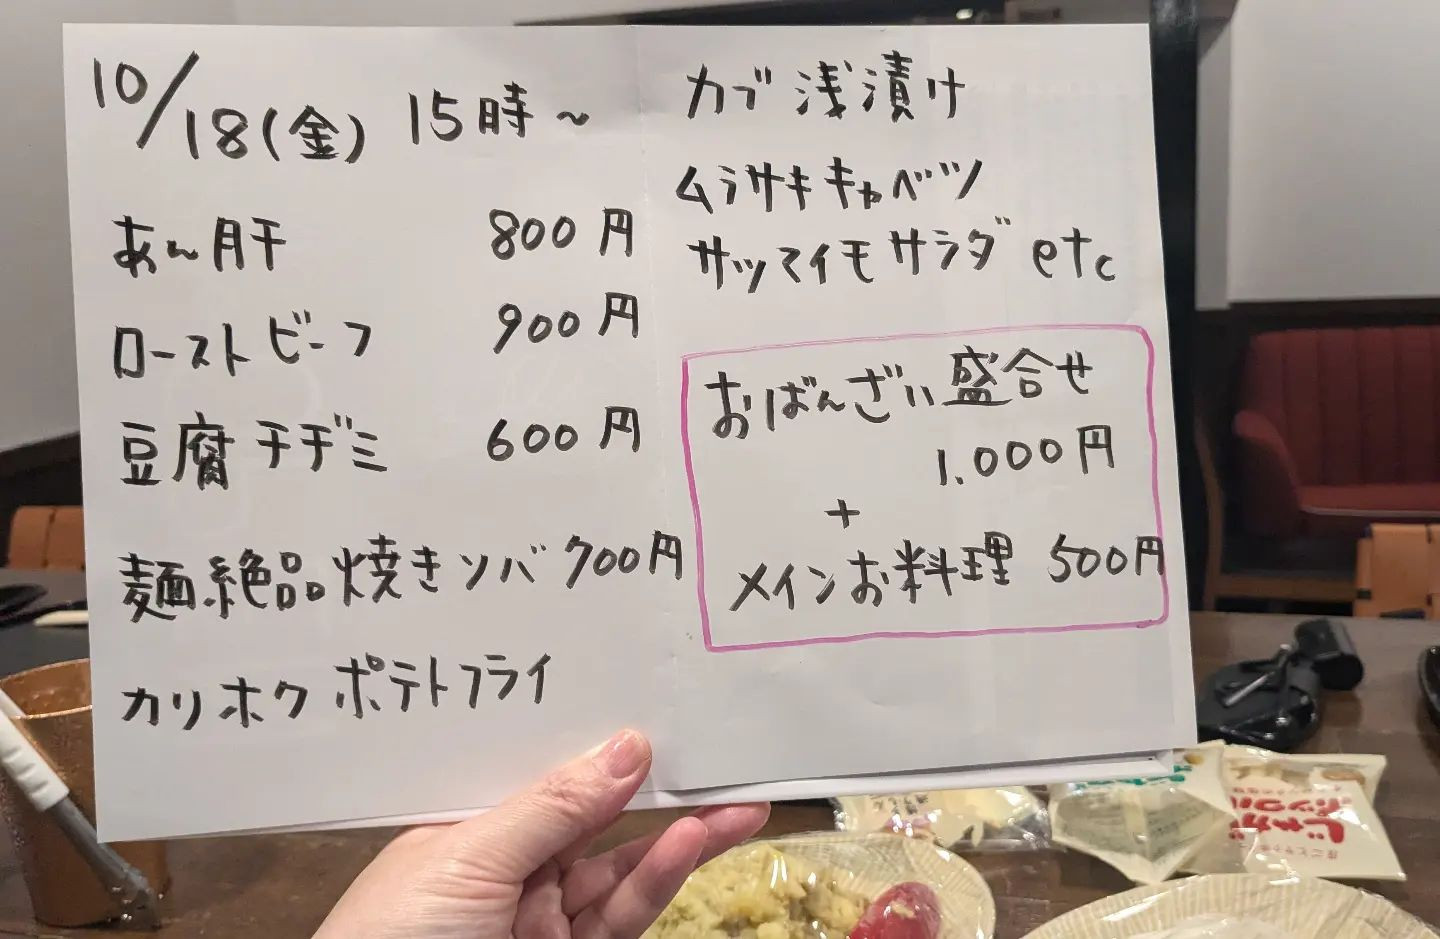 10/18(金) 15時～
あん肝 800円
ローストビーフ 900円
豆腐チヂミ 600円
麺絶品焼きソバ 700円
カリホクポテトフライ
カブ浅漬け
ムラサキキャベツ
サツマイモサラダ etc
おばんざい盛合せ
1.000円
+
メインお料理 500円
じゃが
ポックル